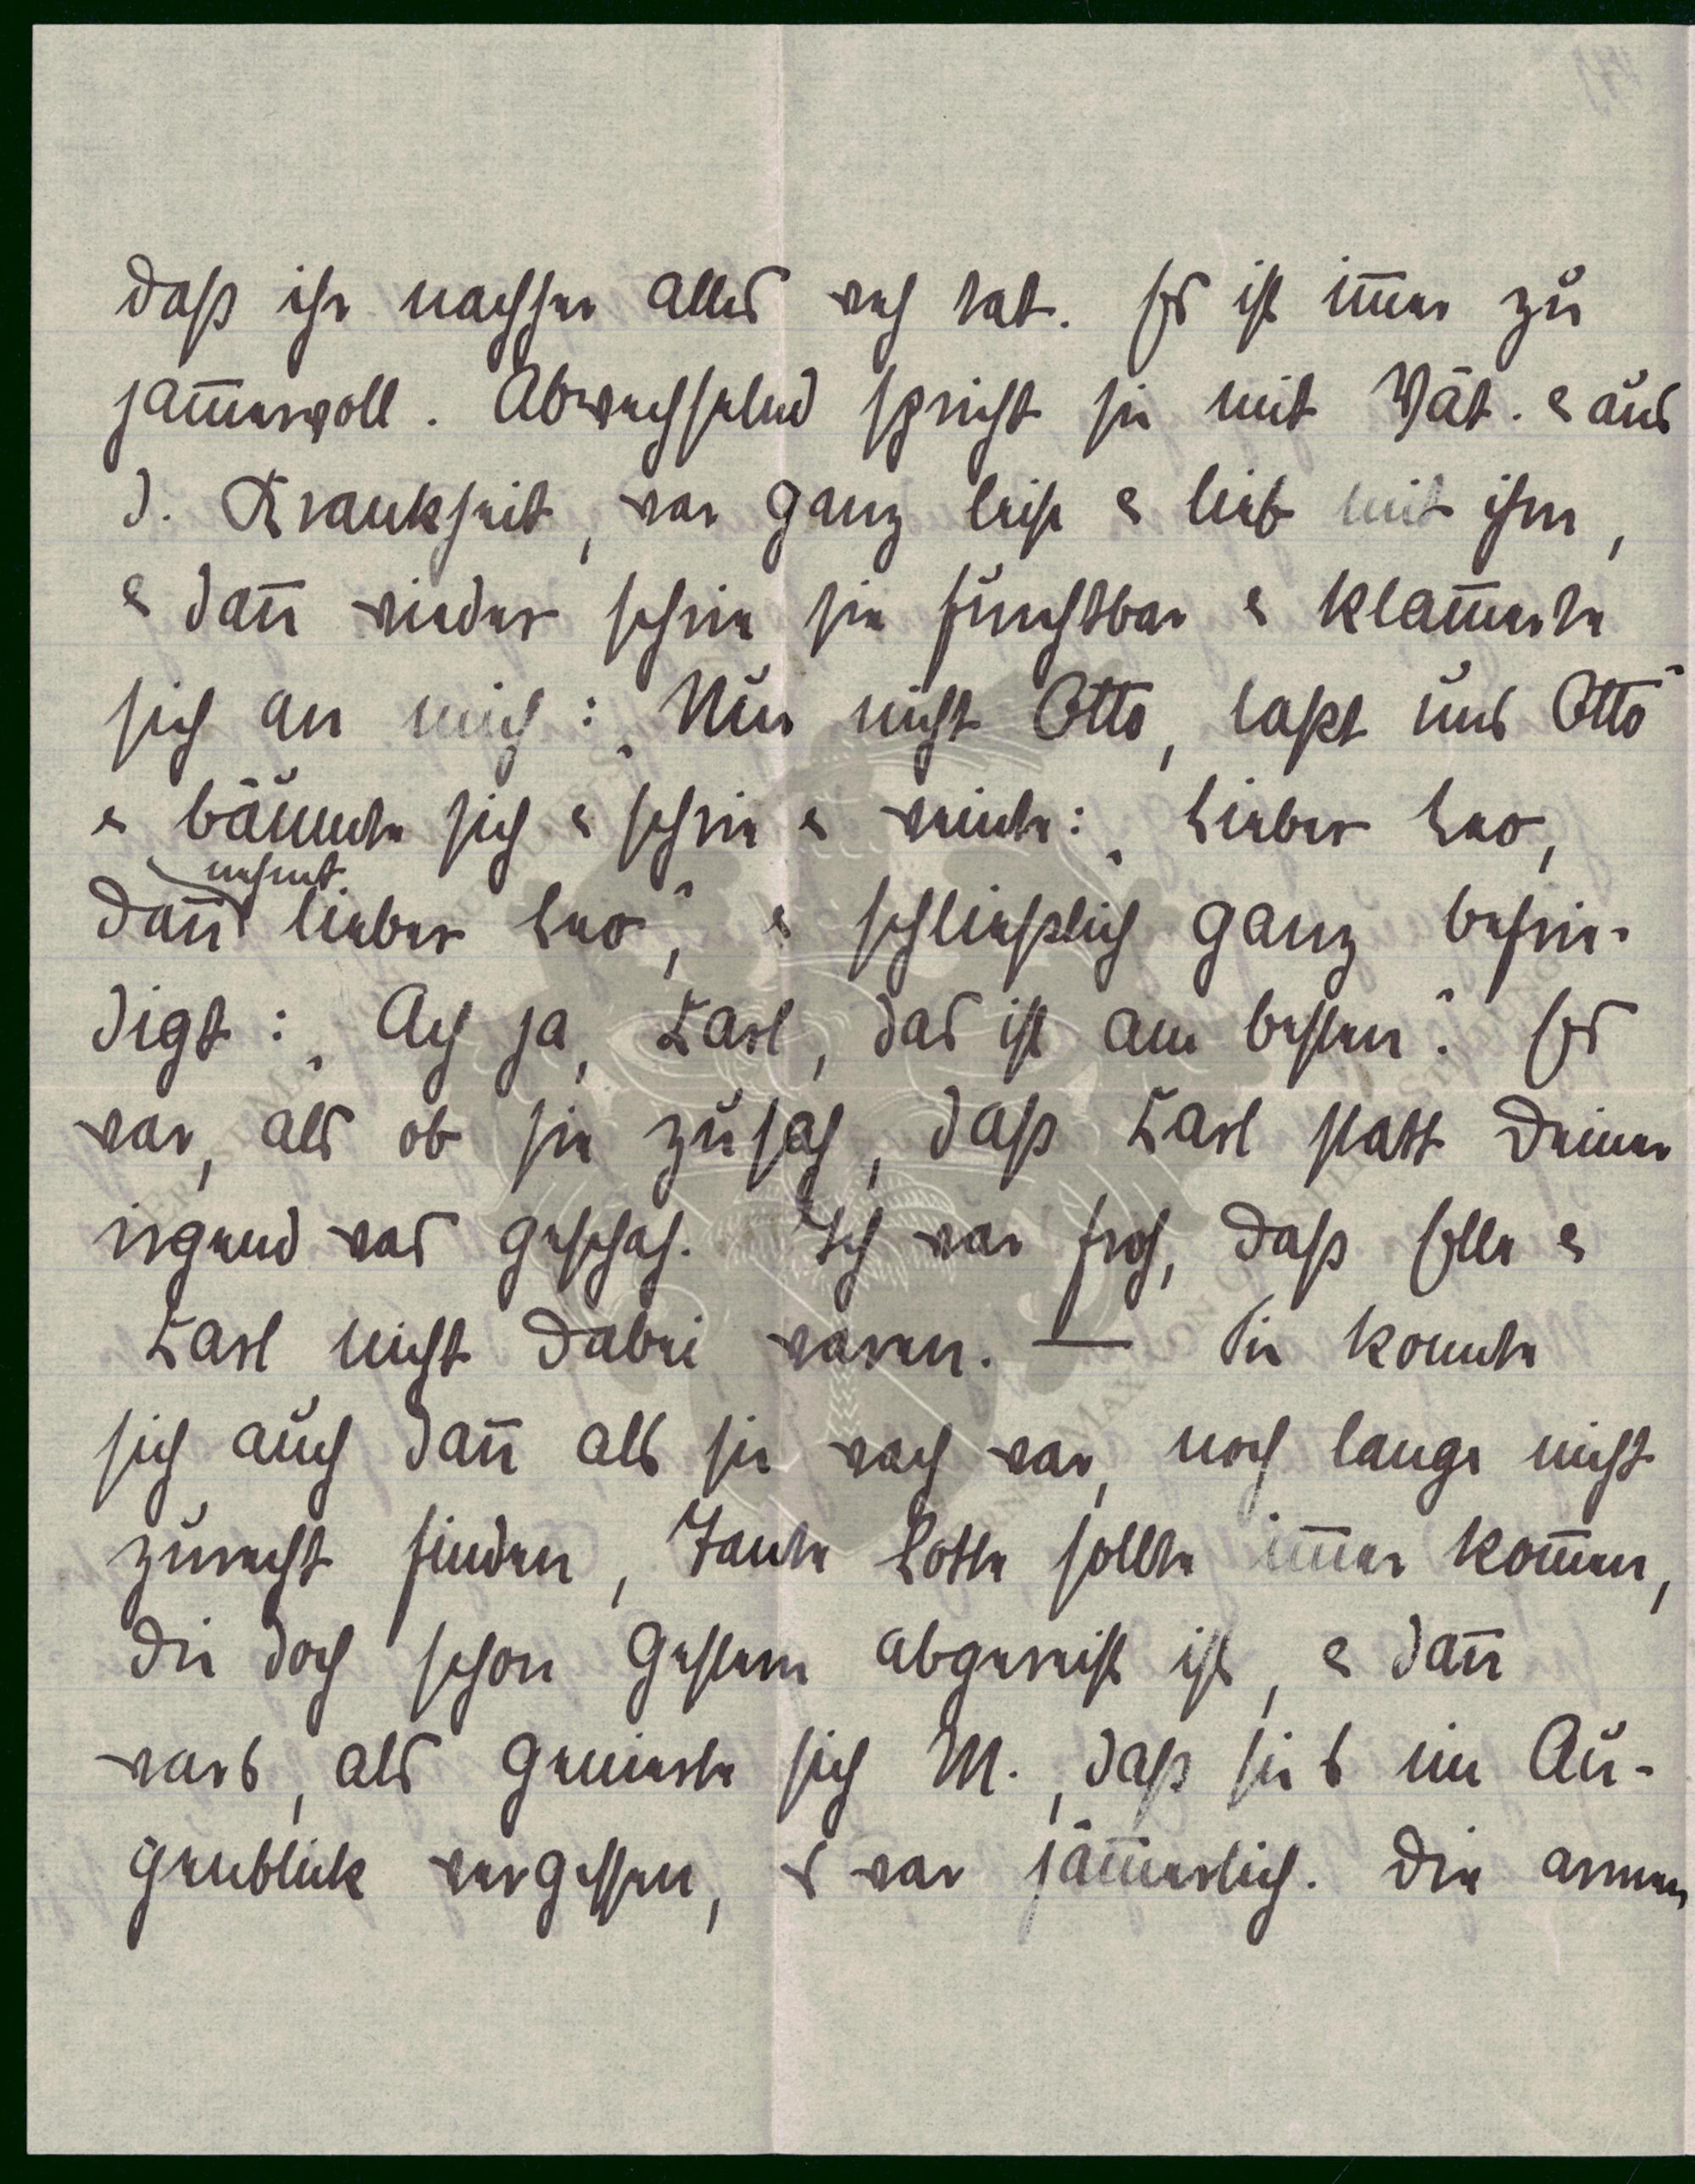 daß ihr nachher alles weh tat. Es ist im̅er zu
jam̅ervoll. Abwechselnd spricht sie mit Vät. & aus
d. Krankheit, war ganz leise & lieb mit ihm,
& dan̅ wieder schrie sie furchtbar & klam̅erte
sich an mich: „Nur nicht Otto, laßt uns Otto“
& bäumte sich & schrie & weinte: „Lieber Leo,
nehmt
dan̅ lieber Leo“, & schließlich ganz befrie-
digt: „Ach ja, Carl, das ist am besten“. Es
war, als ob sie zusah, daß Carl statt Deiner
irgend was geschah. Ich war froh, daß Elle &
Carl nicht dabei waren. — Sie konnte
sich auch dan̅ als sie wach war, noch lange nicht
zurecht finden, Tante Lotte sollte im̅er kom̅en,
die doch schon gestern abgereist ist, & dan̅
wars, als genierte sich M., daß sie's im Au-
genblick vergessen, es war jäm̅erlich. Die armen